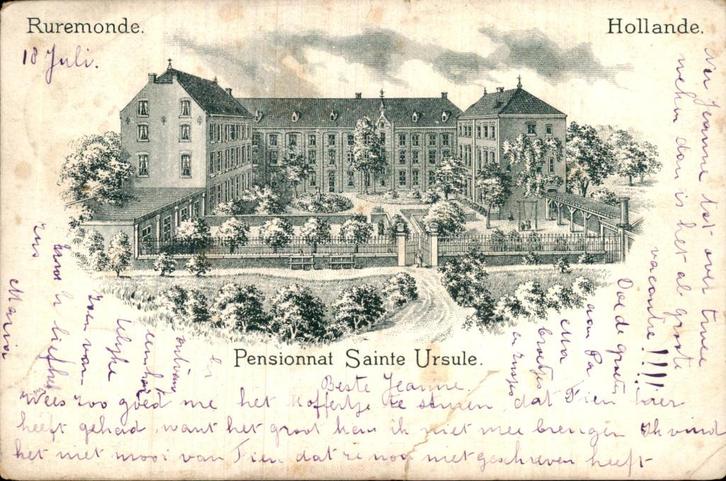 Ruremonde.
Hollande.
18 Juli.
Pensionnat Sainte Ursule.
Beste Jeanne.
Wees zoo goed me het koffertje te sturen, dat Tien hier
heeft gehad, want het groot kan ik niet mee brengen Ik vind
het niet mooi van Tien dat ze nog niet geschreven heeft
Jeanne tot over twee
weken dan is het al groote
vacantie!!!!
Doe de groeten
aan Pa
Ma
broertjes
en zusjes
en ontvang
een hart
lijke
zoen van
liefh.
zus
Maria